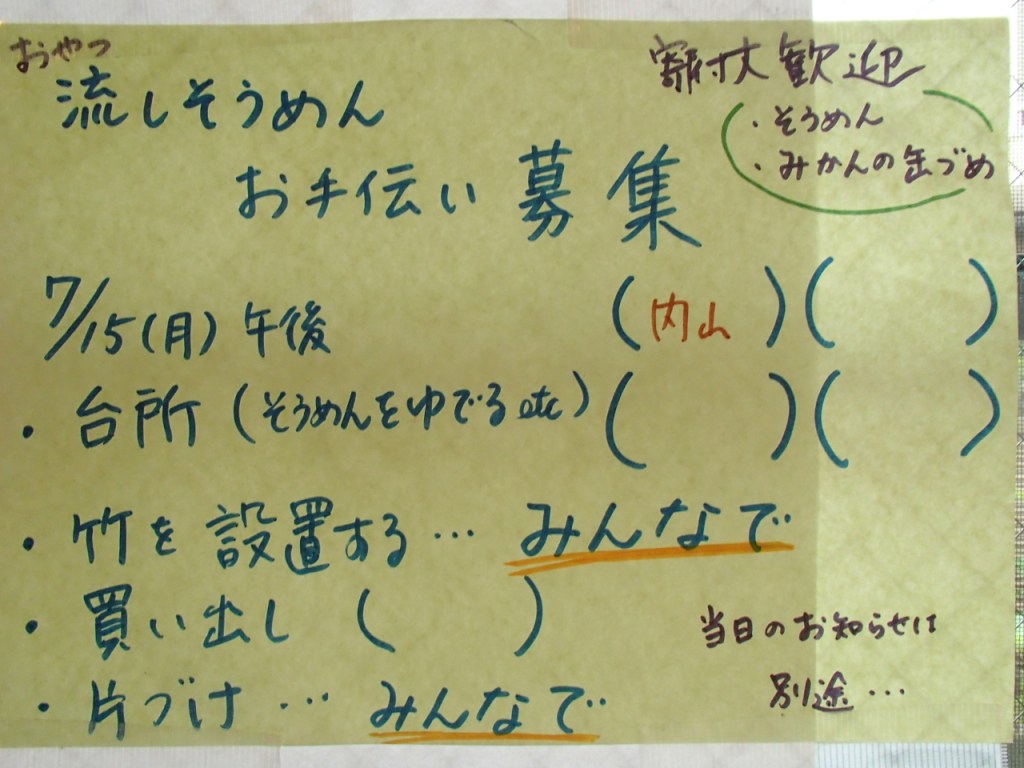 おやつ
流しそうめん
お手伝い 募集
寄付大歓迎
・そうめん
・みかんの缶づめ
7/15(月) 午後 (内山)( )
・台所(そうめんをゆでるetc)( )( )
・竹を設置する… みんなで
・買い出し ( )
・片づけ … みんなで
当日のお知らせは
別途…